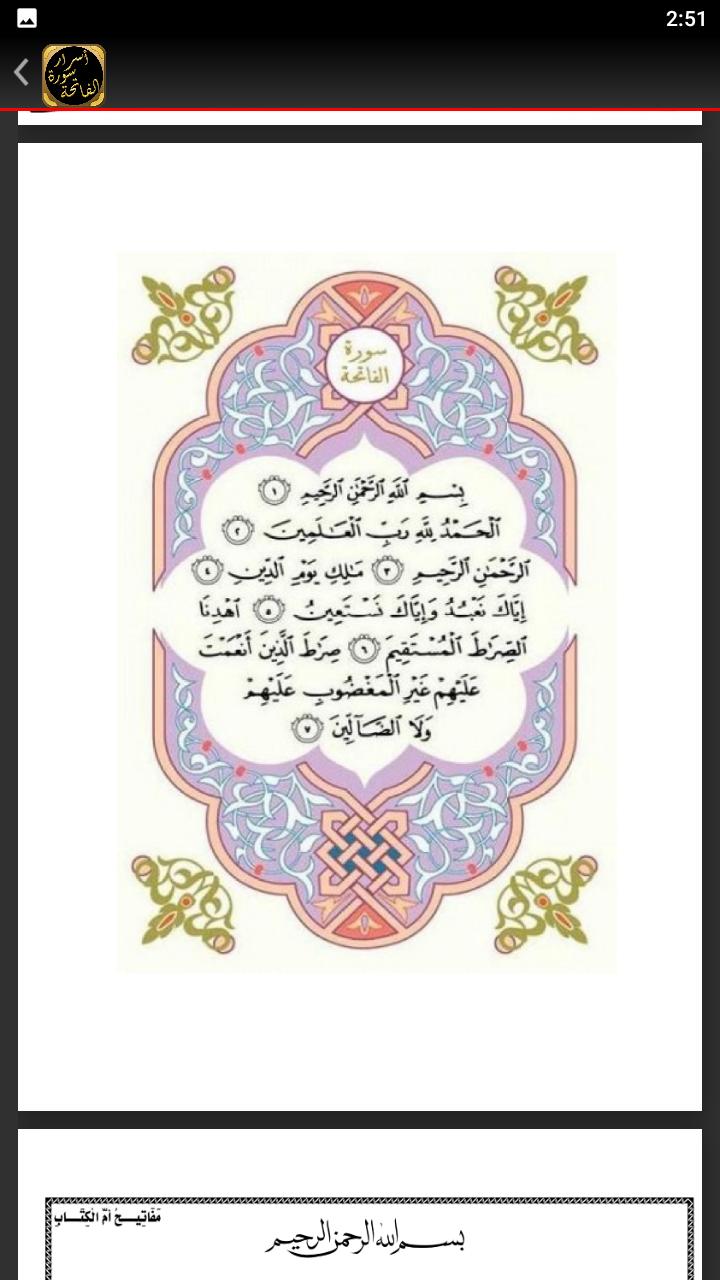 2:51
أسرار
سورة
الفاتحة
سورة
الفاتحة
بِسْمِ ٱللَّهِ ٱلرَّحْمَٰنِ ٱلرَّحِيمِ ١
ٱلْحَمْدُ لِلَّهِ رَبِّ ٱلْعَٰلَمِينَ ٢
ٱلرَّحْمَٰنِ ٱلرَّحِيمِ ٣ مَٰلِكِ يَوْمِ ٱلدِّينِ ٤
إِيَّاكَ نَعْبُدُ وَإِيَّاكَ نَسْتَعِينُ ٥ ٱهْدِنَا
ٱلصِّرَٰطَ ٱلْمُسْتَقِيمَ ٦ صِرَٰطَ ٱلَّذِينَ أَنْعَمْتَ
عَلَيْهِمْ غَيْرِ ٱلْمَغْضُوبِ عَلَيْهِمْ
وَلَا ٱلضَّآلِّينَ ٧
مَفَاتِيحُ أُمِّ الْكِتَابِ
بسم الله الرحمن الرحيم